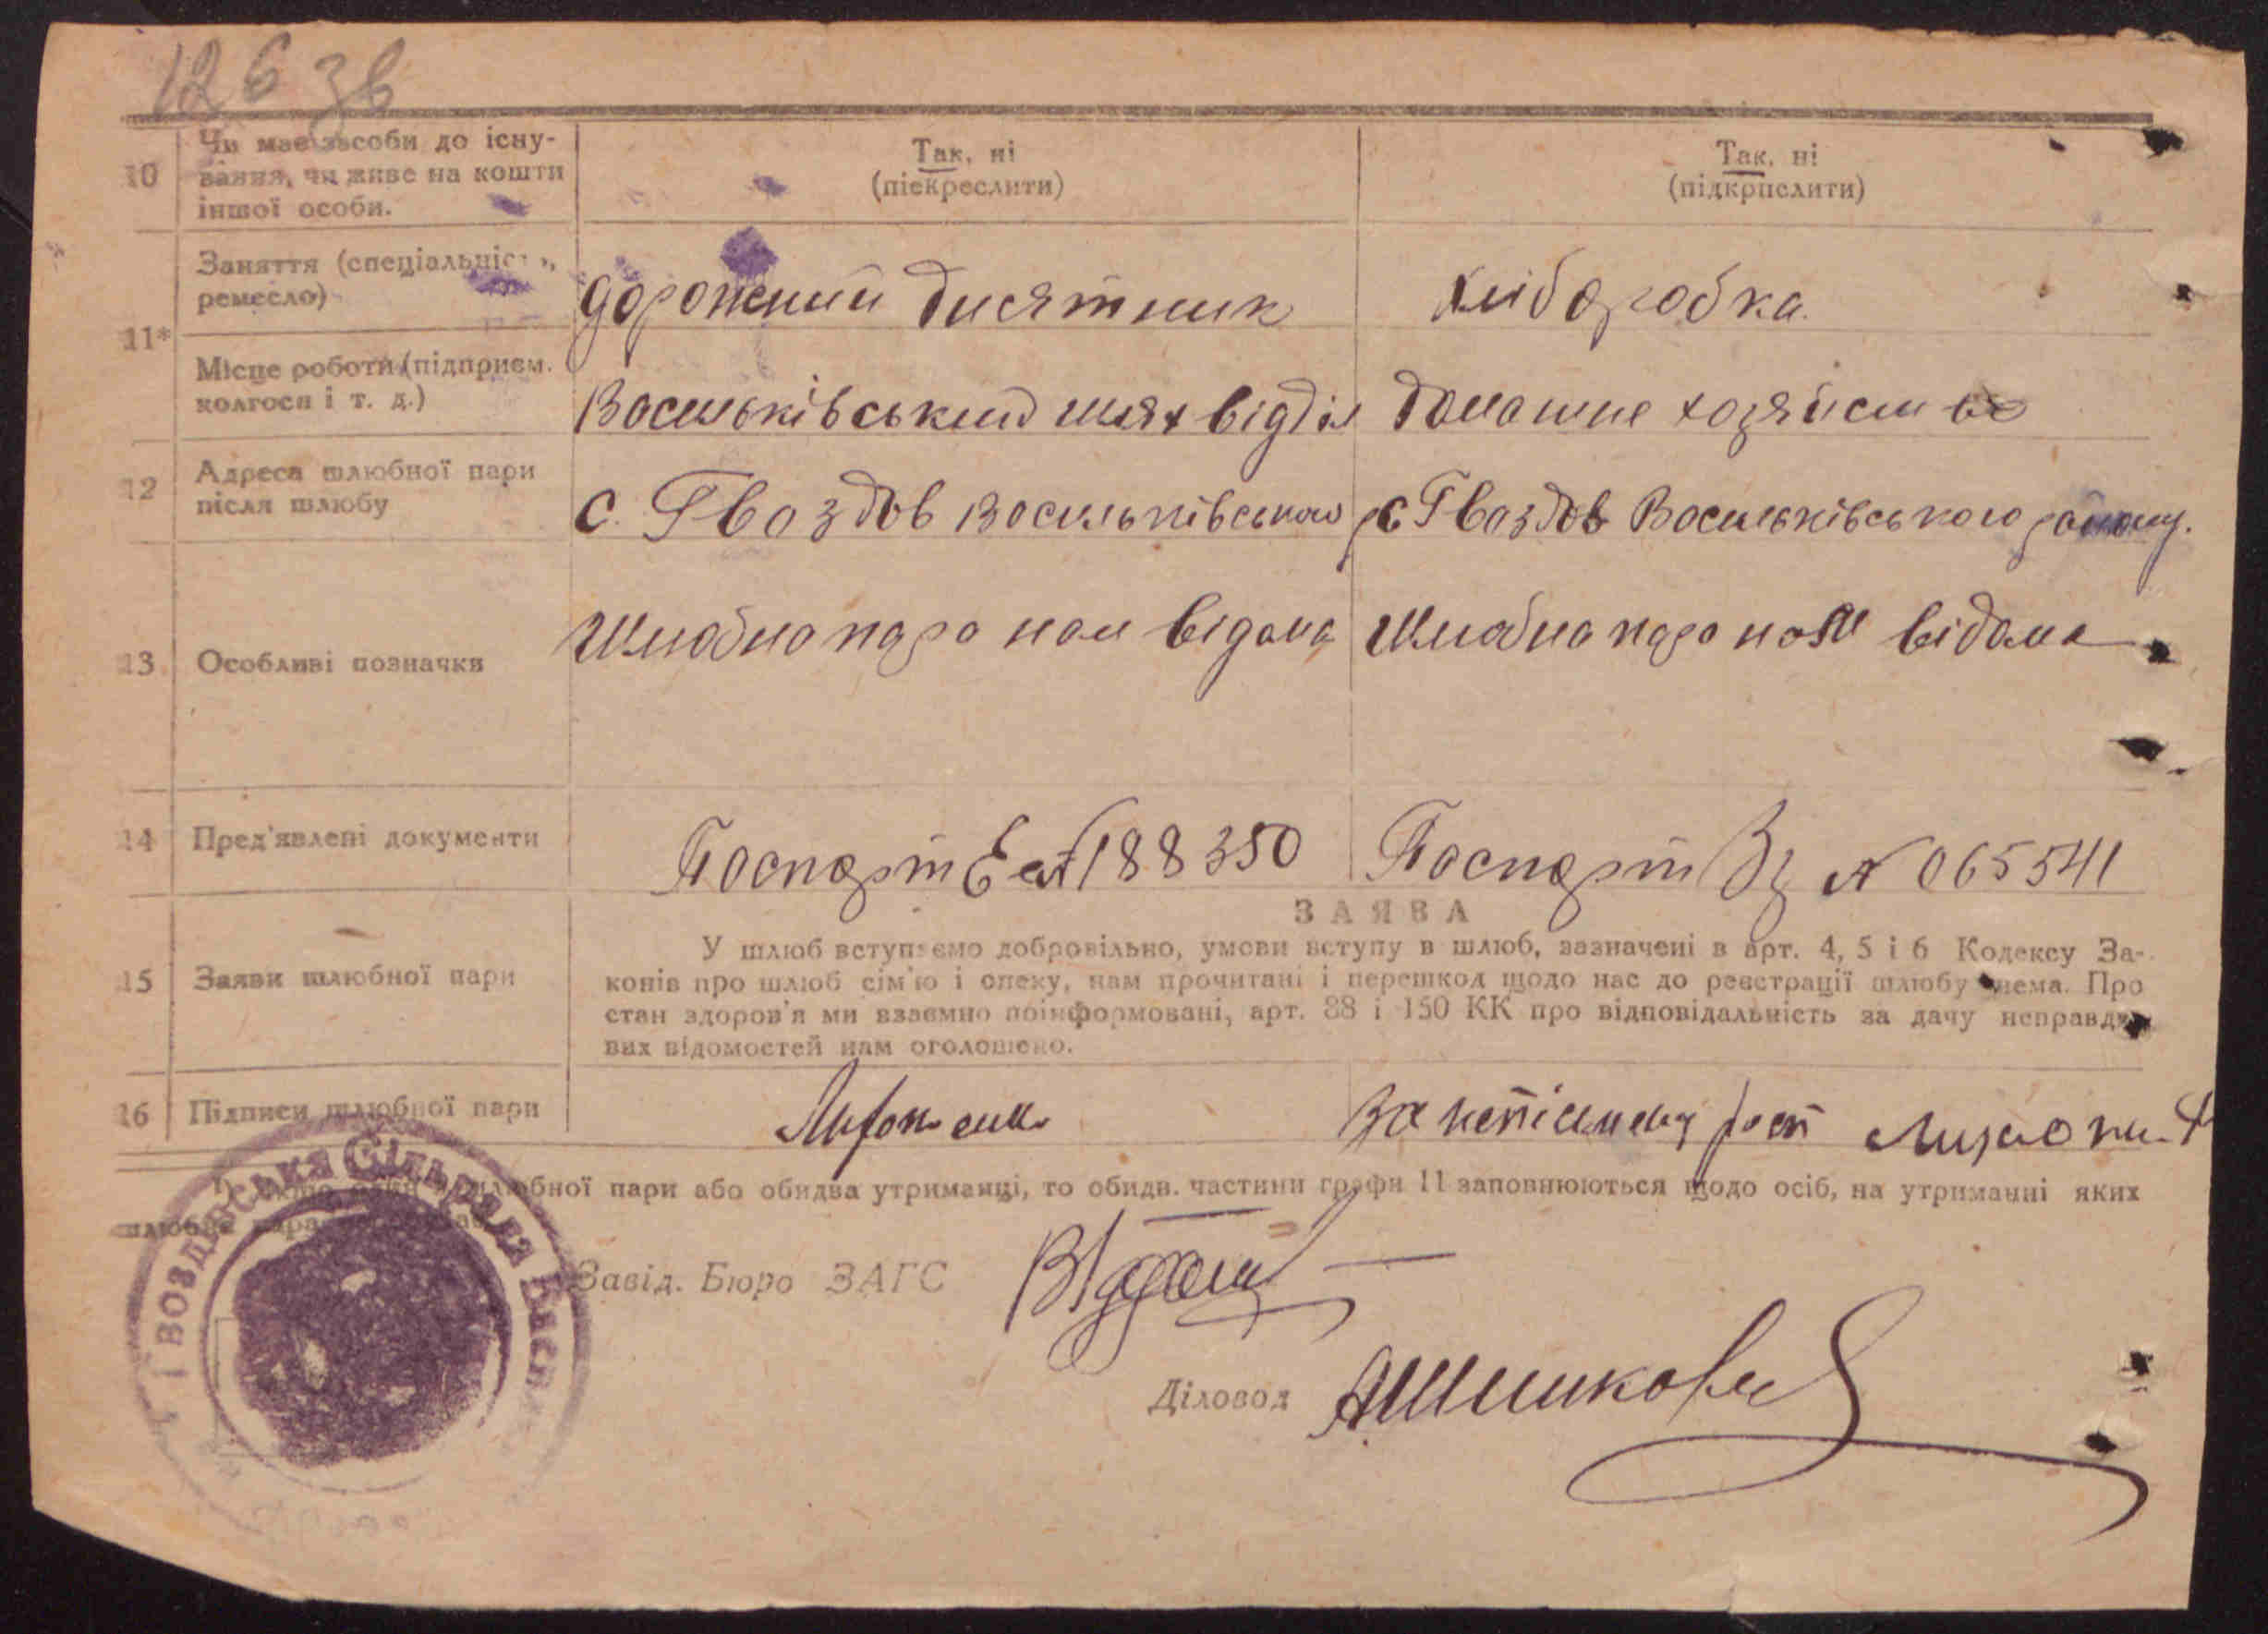 126 зв
10
Чи має засоби до існу-
вання, чи живе на кошти
іншої особи.
Так, ні
(пієкреслити)
Так, ні
(підкрпслити)
11*
Заняття (спеціальність,
ремесло)
дорожний дисятник
хліборобка.
Місце роботи (підприєм.
колгосп і т. д.)
Васильківський шлях відділ
домашне хозяйство
12
Адреса шлюбної пари
після шлюбу
с. Гвоздов Васильківського р
с Гвоздов Васильківського району.
13
Особливі позначки
Шлюбна пара нам відома
Шлюбна пара нам відома
14
Пред'явлені документи
Паспорт № 188350
Паспорт № 065541
15
Заяви шлюбної пари
ЗАЯВА
У шлюб вступаємо добровільно, умови вступу в шлюб, зазначені в арт. 4, 5 і 6 Кодексу За-
конів про шлюб сім'ю і опеку, нам прочитані і перешкод щодо нас до реєстрації шлюбу нема. Про
стан здоров'я ми взаємно поінформовані, арт. 88 і 150 КК про відповідальність за дачу неправди-
вих відомостей нам оголошено.
16
Підписи шлюбної пари
за
бної пари або обидва утриманці, то обидв. частини графи 11 заповнюються щодо осіб, на утриманні яких
Гвоздівська Сільрада
Завід. Бюро ЗАГС
Діловод